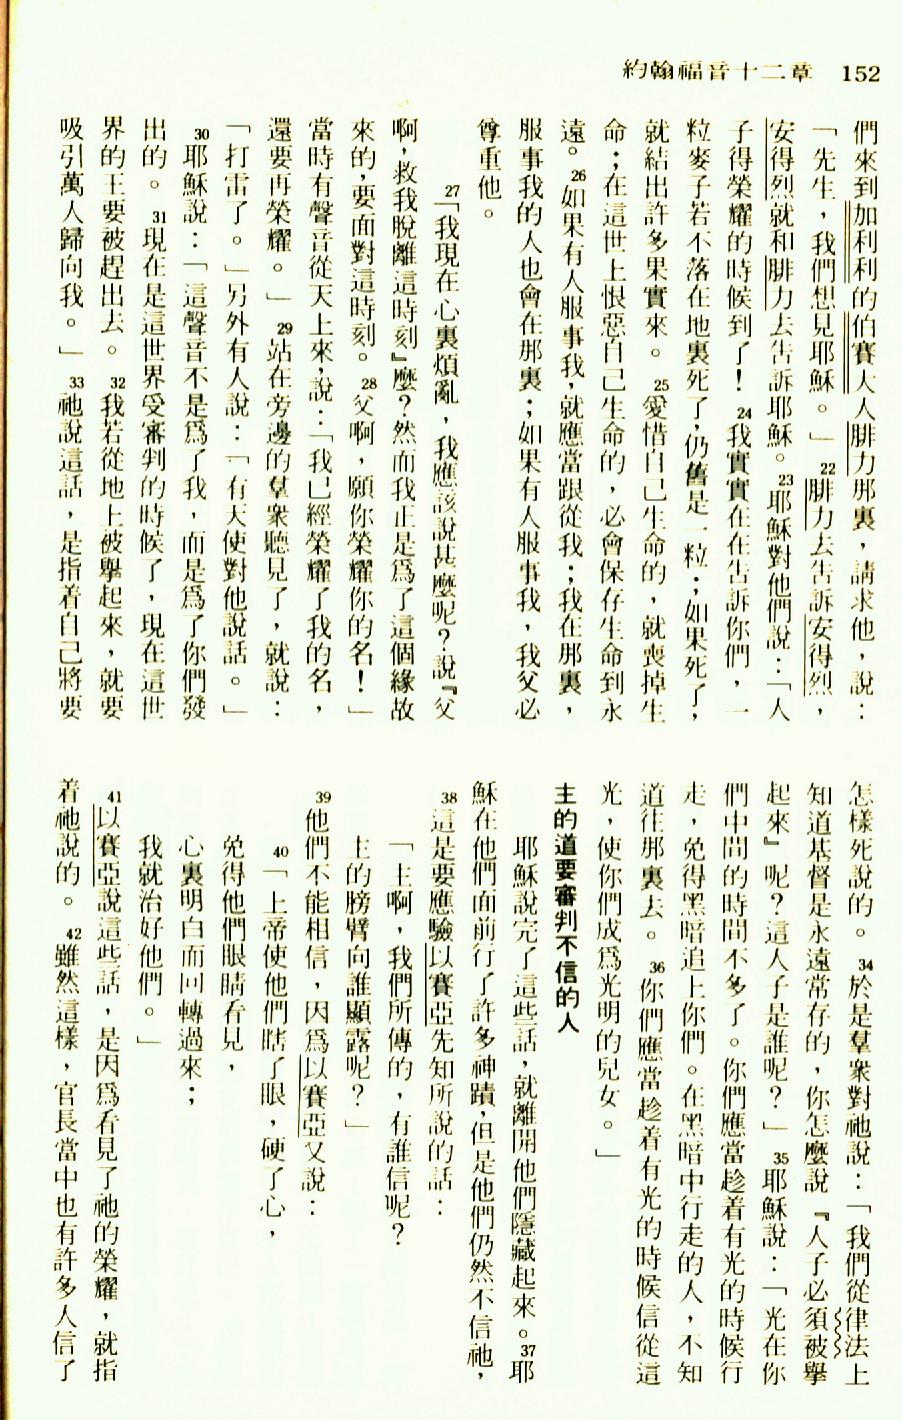 約翰福音十二章 152
們來到加利利的伯賽大人腓力那裏，請求他，說：
「先生，我們想見耶穌。」22腓力去告訴安得烈，
安得烈就和腓力去告訴耶穌。23耶穌對他們說：「人
子得榮耀的時候到了！24我實實在在告訴你們，一
粒麥子若不落在地裏死了，仍舊是一粒；如果死了，
就結出許多果實來。25愛惜自己生命的，就喪掉生
命；在這世上恨惡自己生命的，必會保存生命到永
遠。26如果有人服事我，就應當跟從我；我在那裏，
服事我的人也會在那裏；如果有人服事我，我父必
尊重他。
27「我現在心裏煩亂，我應該說甚麼呢？說『父
啊，救我脫離這時刻』麼？然而我正是爲了這個緣故
來的，要面對這時刻。28父啊，願你榮耀你的名！」
當時有聲音從天上來，說：「我已經榮耀了我的名，
還要再榮耀。」29站在旁邊的羣衆聽見了，就說：
「打雷了。」另外有人說：「有天使對他說話。」
30耶穌說：「這聲音不是爲了我，而是爲了你們發
出的。31現在是這世界受審判的時候了，現在這世
界的王要被趕出去。32我若從地上被舉起來，就要
吸引萬人歸向我。」33祂說這話，是指着自己將要
怎樣死說的。34於是羣衆對祂說：「我們從律法上
知道基督是永遠常存的，你怎麼說『人子必須被舉
起來』呢？這人子是誰呢？」35耶穌說：「光在你
們中間的時間不多了。你們應當趁着有光的時候行
走，免得黑暗追上你們。在黑暗中行走的人，不知
道往那裏去。36你們應當趁着有光的時候信從這
光，使你們成爲光明的兒女。」
主的道要審判不信的人
耶穌說完了這些話，就離開他們隱藏起來。37耶
穌在他們面前行了許多神蹟，但是他們仍然不信祂，
38這是要應驗以賽亞先知所說的話：
「主啊，我們所傳的，有誰信呢？
主的膀臂向誰顯露呢？」
39他們不能相信，因爲以賽亞又說：
40「上帝使他們瞎了眼，硬了心，
免得他們眼睛看見，
心裏明白而回轉過來；
我就治好他們。」
41以賽亞說這些話，是因爲看見了祂的榮耀，就指
着祂說的。42雖然這樣，官長當中也有許多人信了